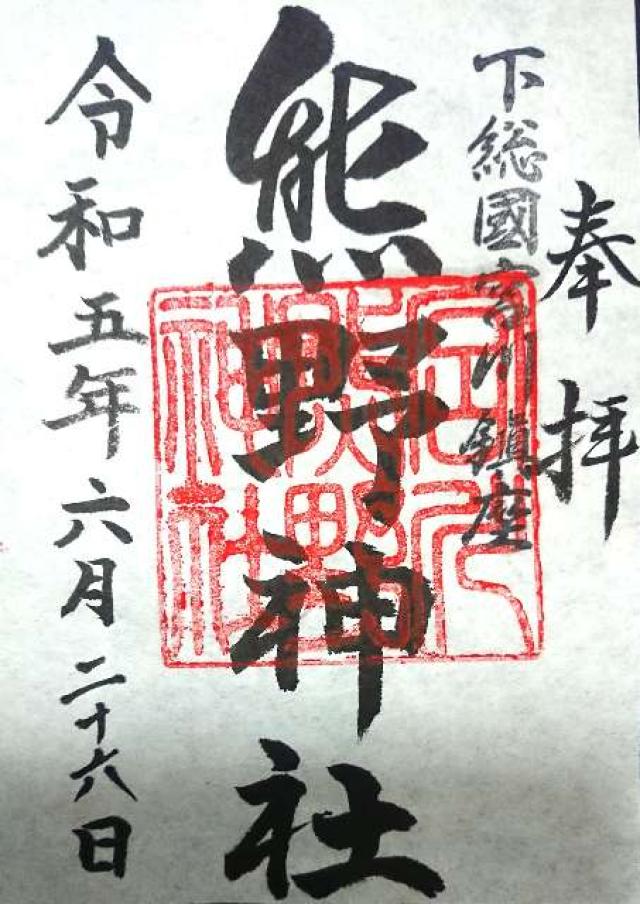 奉拝
下総國宮川鎮座
熊野神社
令和五年六月二十六日
熊野神社